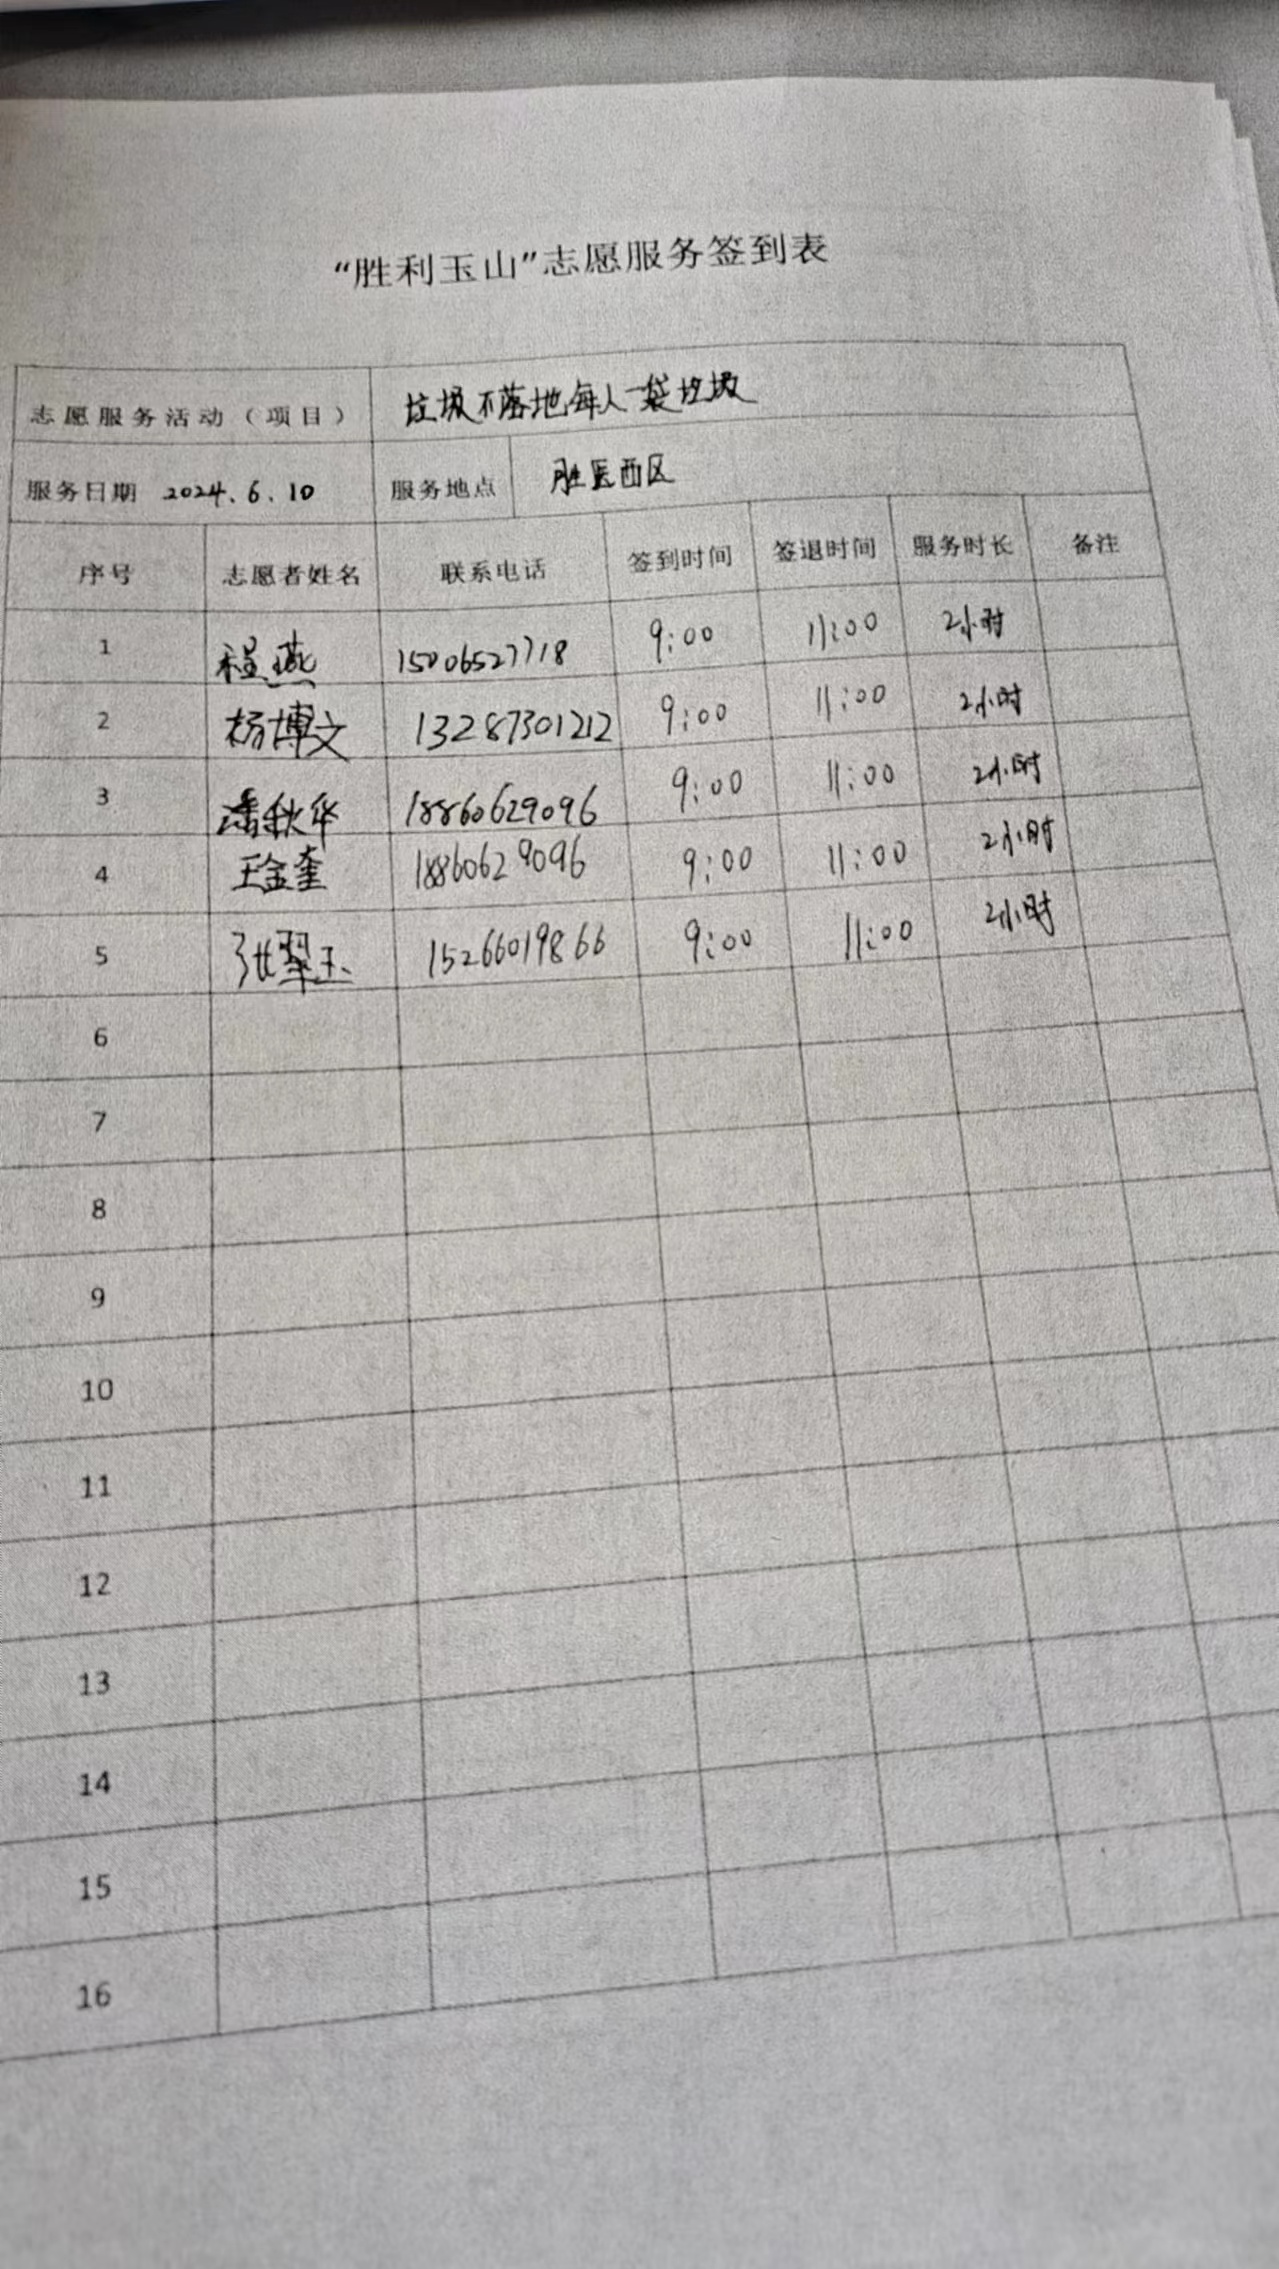 “胜利玉山”志愿服务签到表
志愿服务活动（项目） 垃圾不落地每人一袋垃圾
服务日期 2024.6.10 服务地点 胜医西区
序号 志愿者姓名 联系电话 签到时间 签退时间 服务时长 备注
1 程燕 15006527718 9:00 11:00 2小时
2 杨博文 13287301212 9:00 11:00 2小时
3 潘秋华 18860629096 9:00 11:00 2小时
4 王金奎 18860629096 9:00 11:00 2小时
5 张翠玉 15266019866 9:00 11:00 2小时
6
7
8
9
10
11
12
13
14
15
16